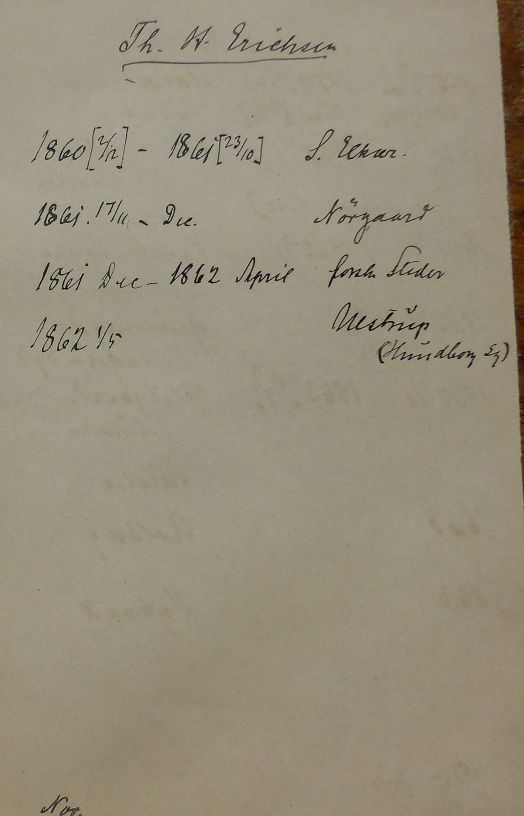 Th. H. Erichsen
1860 [2/12] - 1861 [23/10] S.
1861. 17/11 - Dec. Nörgaard
1861 Dec - 1862 April forsk. Steder
1862 1/5 Ulstrup
(Hundborg Sg)
Nov.